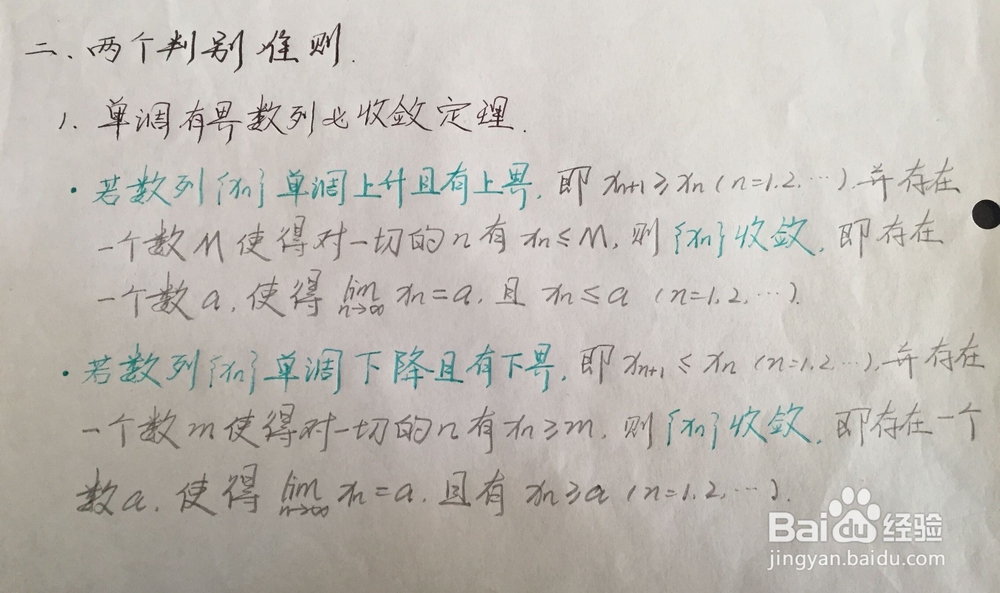 二、两个判别准则.
1. 单调有界数列必收敛定理.
· 若数列{xn}单调上升且有上界, 即 xn+1≥xn (n=1,2,…), 并存在
一个数M使得对一切的n有 xn≤M, 则{xn}收敛, 即存在
一个数a, 使得 lim n→∞ xn=a, 且 xn≤a (n=1,2,…).
· 若数列{xn}单调下降且有下界, 即 xn+1≤xn (n=1,2,…), 并存在
一个数m使得对一切的n有xn≥m, 则{xn}收敛, 即存在一个
数a, 使得 lim n→∞ xn=a, 且有 xn≥a (n=1,2,…).
Baidu经验
jingyan.baidu.com